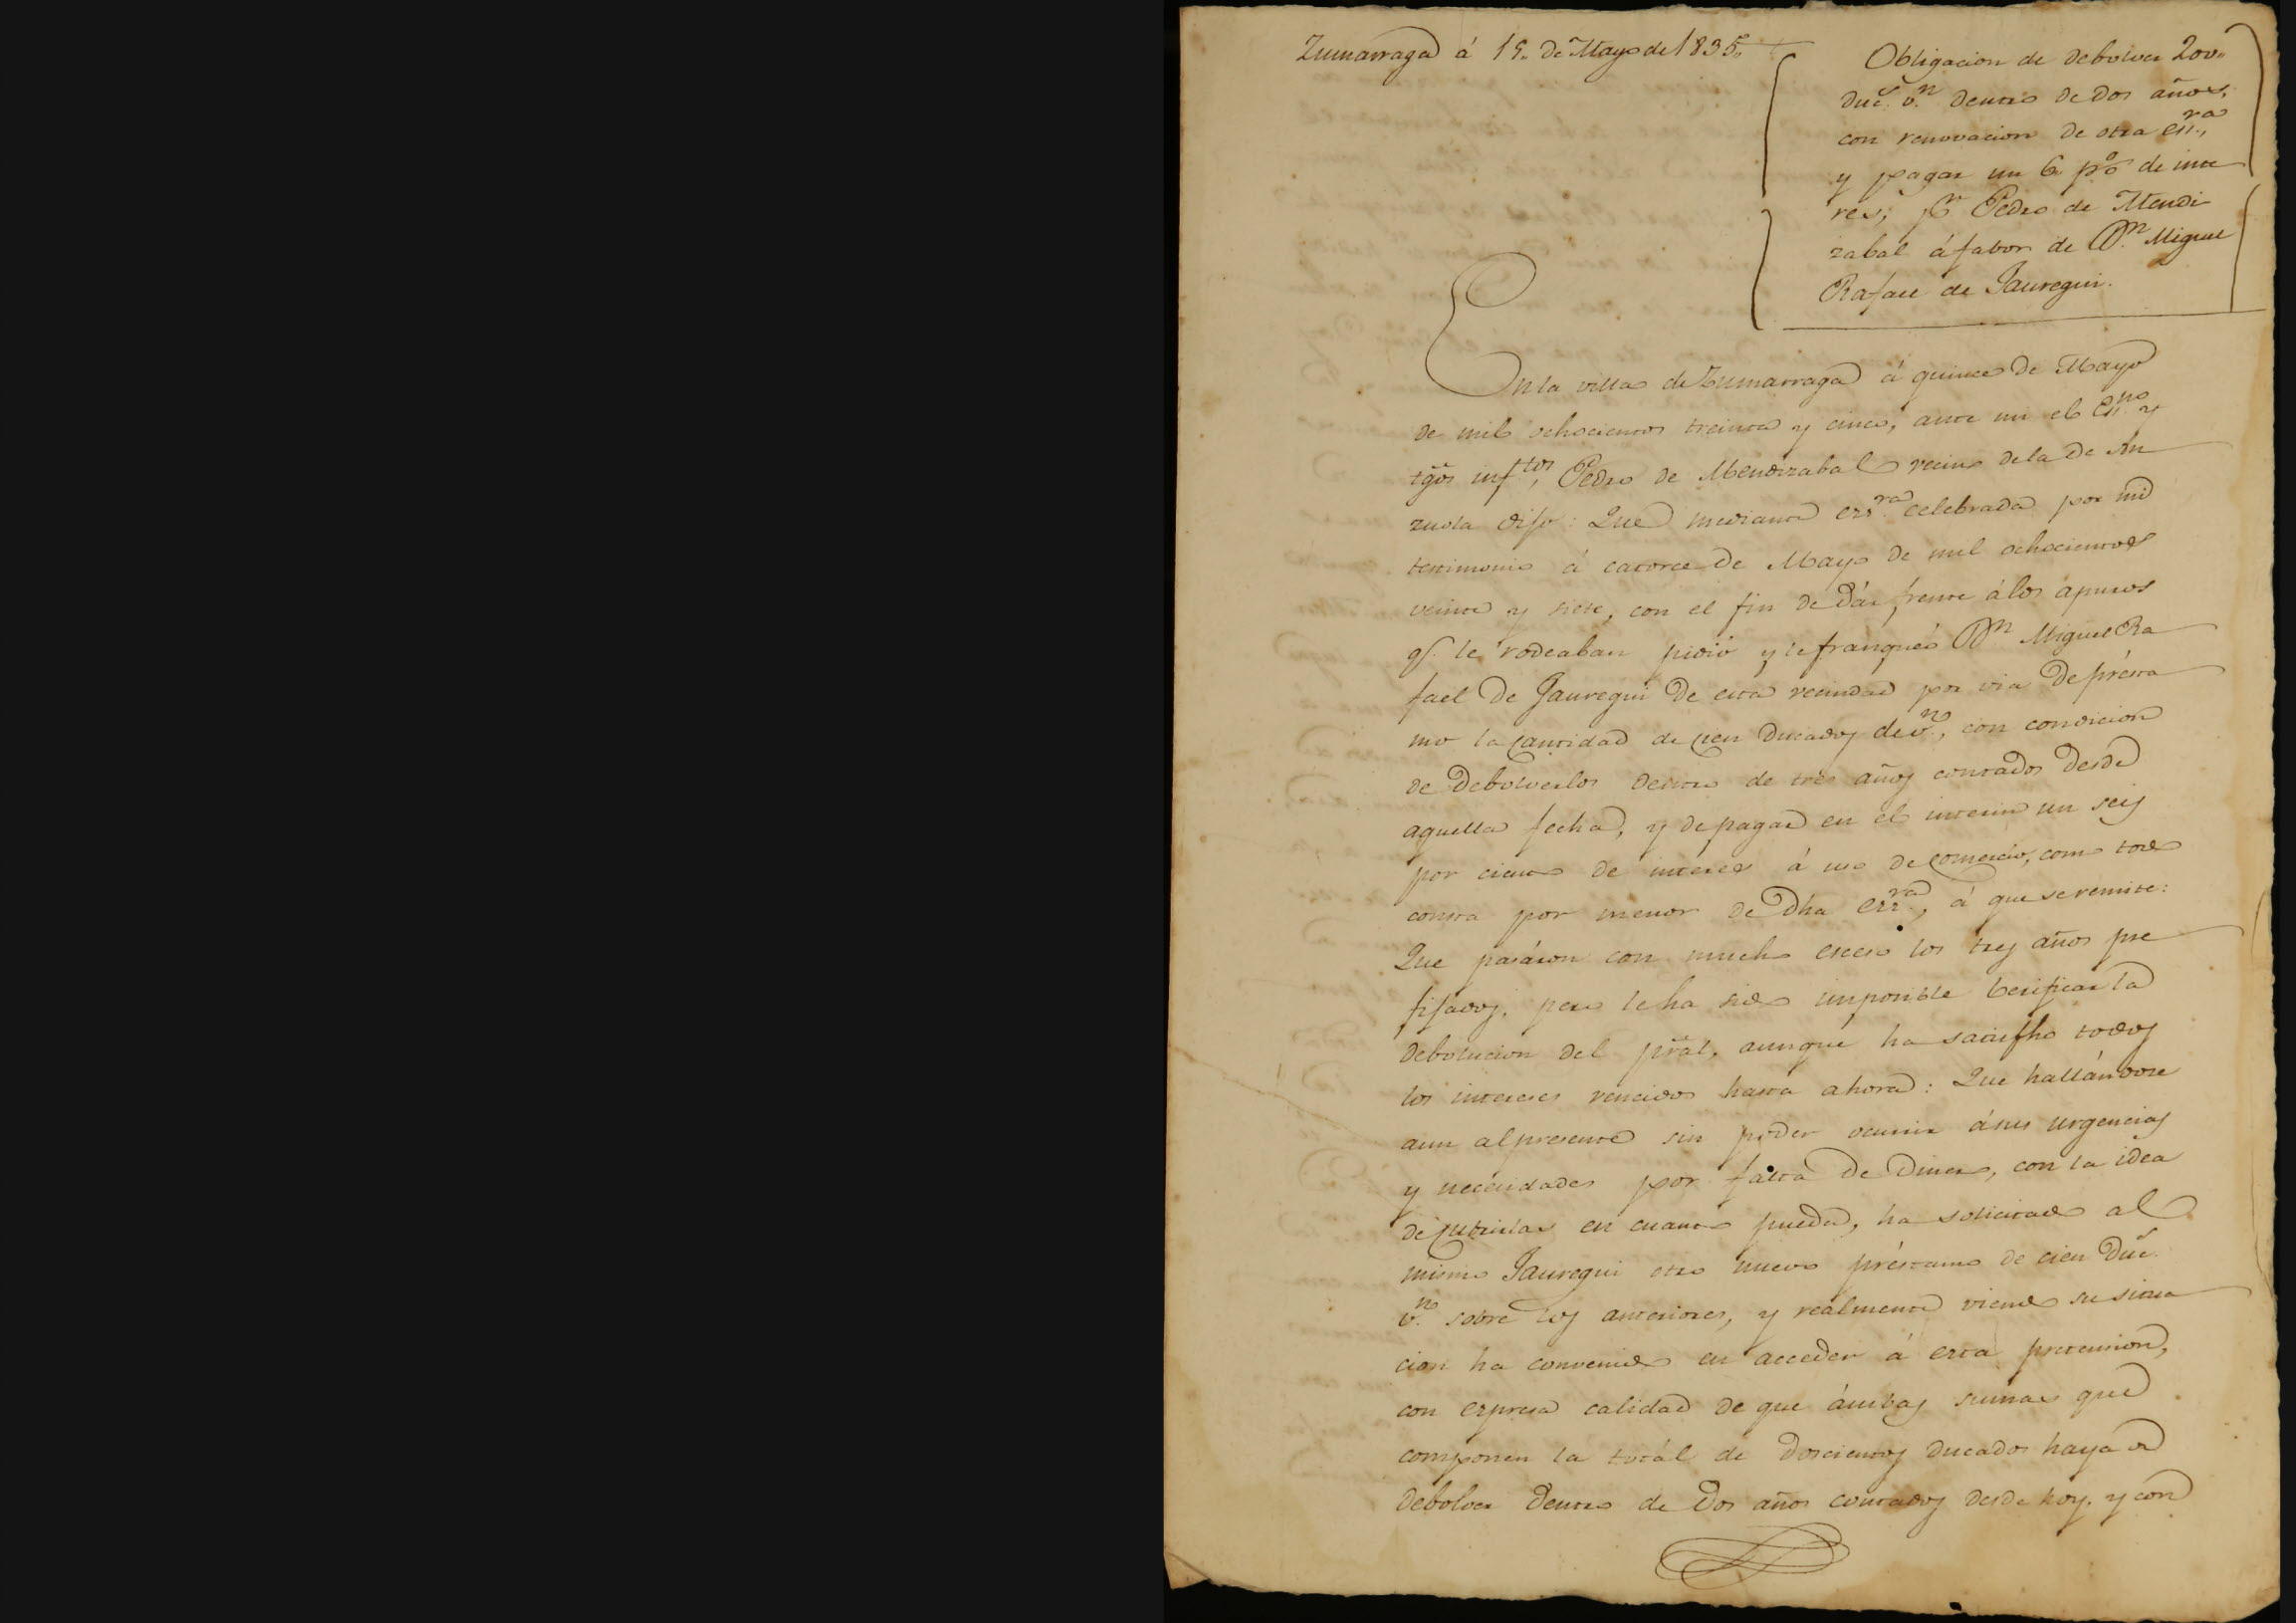 Zumarraga á 15. de Mayo de 1835.
Obligacion de debolver 200.
duc.s v.n dentro de dos años,
con renovacion de otra es.ra,
y pagar un 6 p% de inte
res, p.r Pedro de Mendi
zabal á fabor de D.n Miguel
Rafael de Jauregui.
En la villa de Zumarraga á quince de Mayo
de mil ochocientos treinta y cinco, ante mi el Es.no y
tgõs inf.tos, Pedro de Mendizabal vecino de la de An
zuola dijo: Que mediante esr.ra celebrada por mi
testimonio á catorce de Mayo de mil ochocientos
veinte y siete, con el fin de dár frente á los apuros
q.e le rodeaban pidió y le franqueó D.n Miguel Ra
fael de Jauregui de esta vecindad por via de présta
mo la cantidad de cien ducados de v.n, con condicion
de debolverlos dentro de tres años contados desde
aquella fecha, y de pagar en el interin un seis
por ciento de interes á uso de comercio, como todo
consta por menor de dha esr.ra, á que se remite:
Que pasáron con mucho exceso los tres años pre
fijados, pero le ha sido imposible berificar la
debolucion del prãl, aunque ha satisfho todos
los intereses vencidos hasta ahora: Que hallándose
aun al presente sin poder ocurrir á sus urgencias
y necesidades por falta de dinero, con la idea
de cubrirlas en cuanto pueda, ha solicitado al
mismo Jauregui otro nuevo préstamo de cien duc.s
v.n sobre los anteriores, y realmente viendo su situa
cion ha convenido en acceder á esta pretension,
con expresa calidad de que ámbas sumas que
componen la totál de doscientos ducados haya de
debolver dentro de dos años contados desde hoy, y con